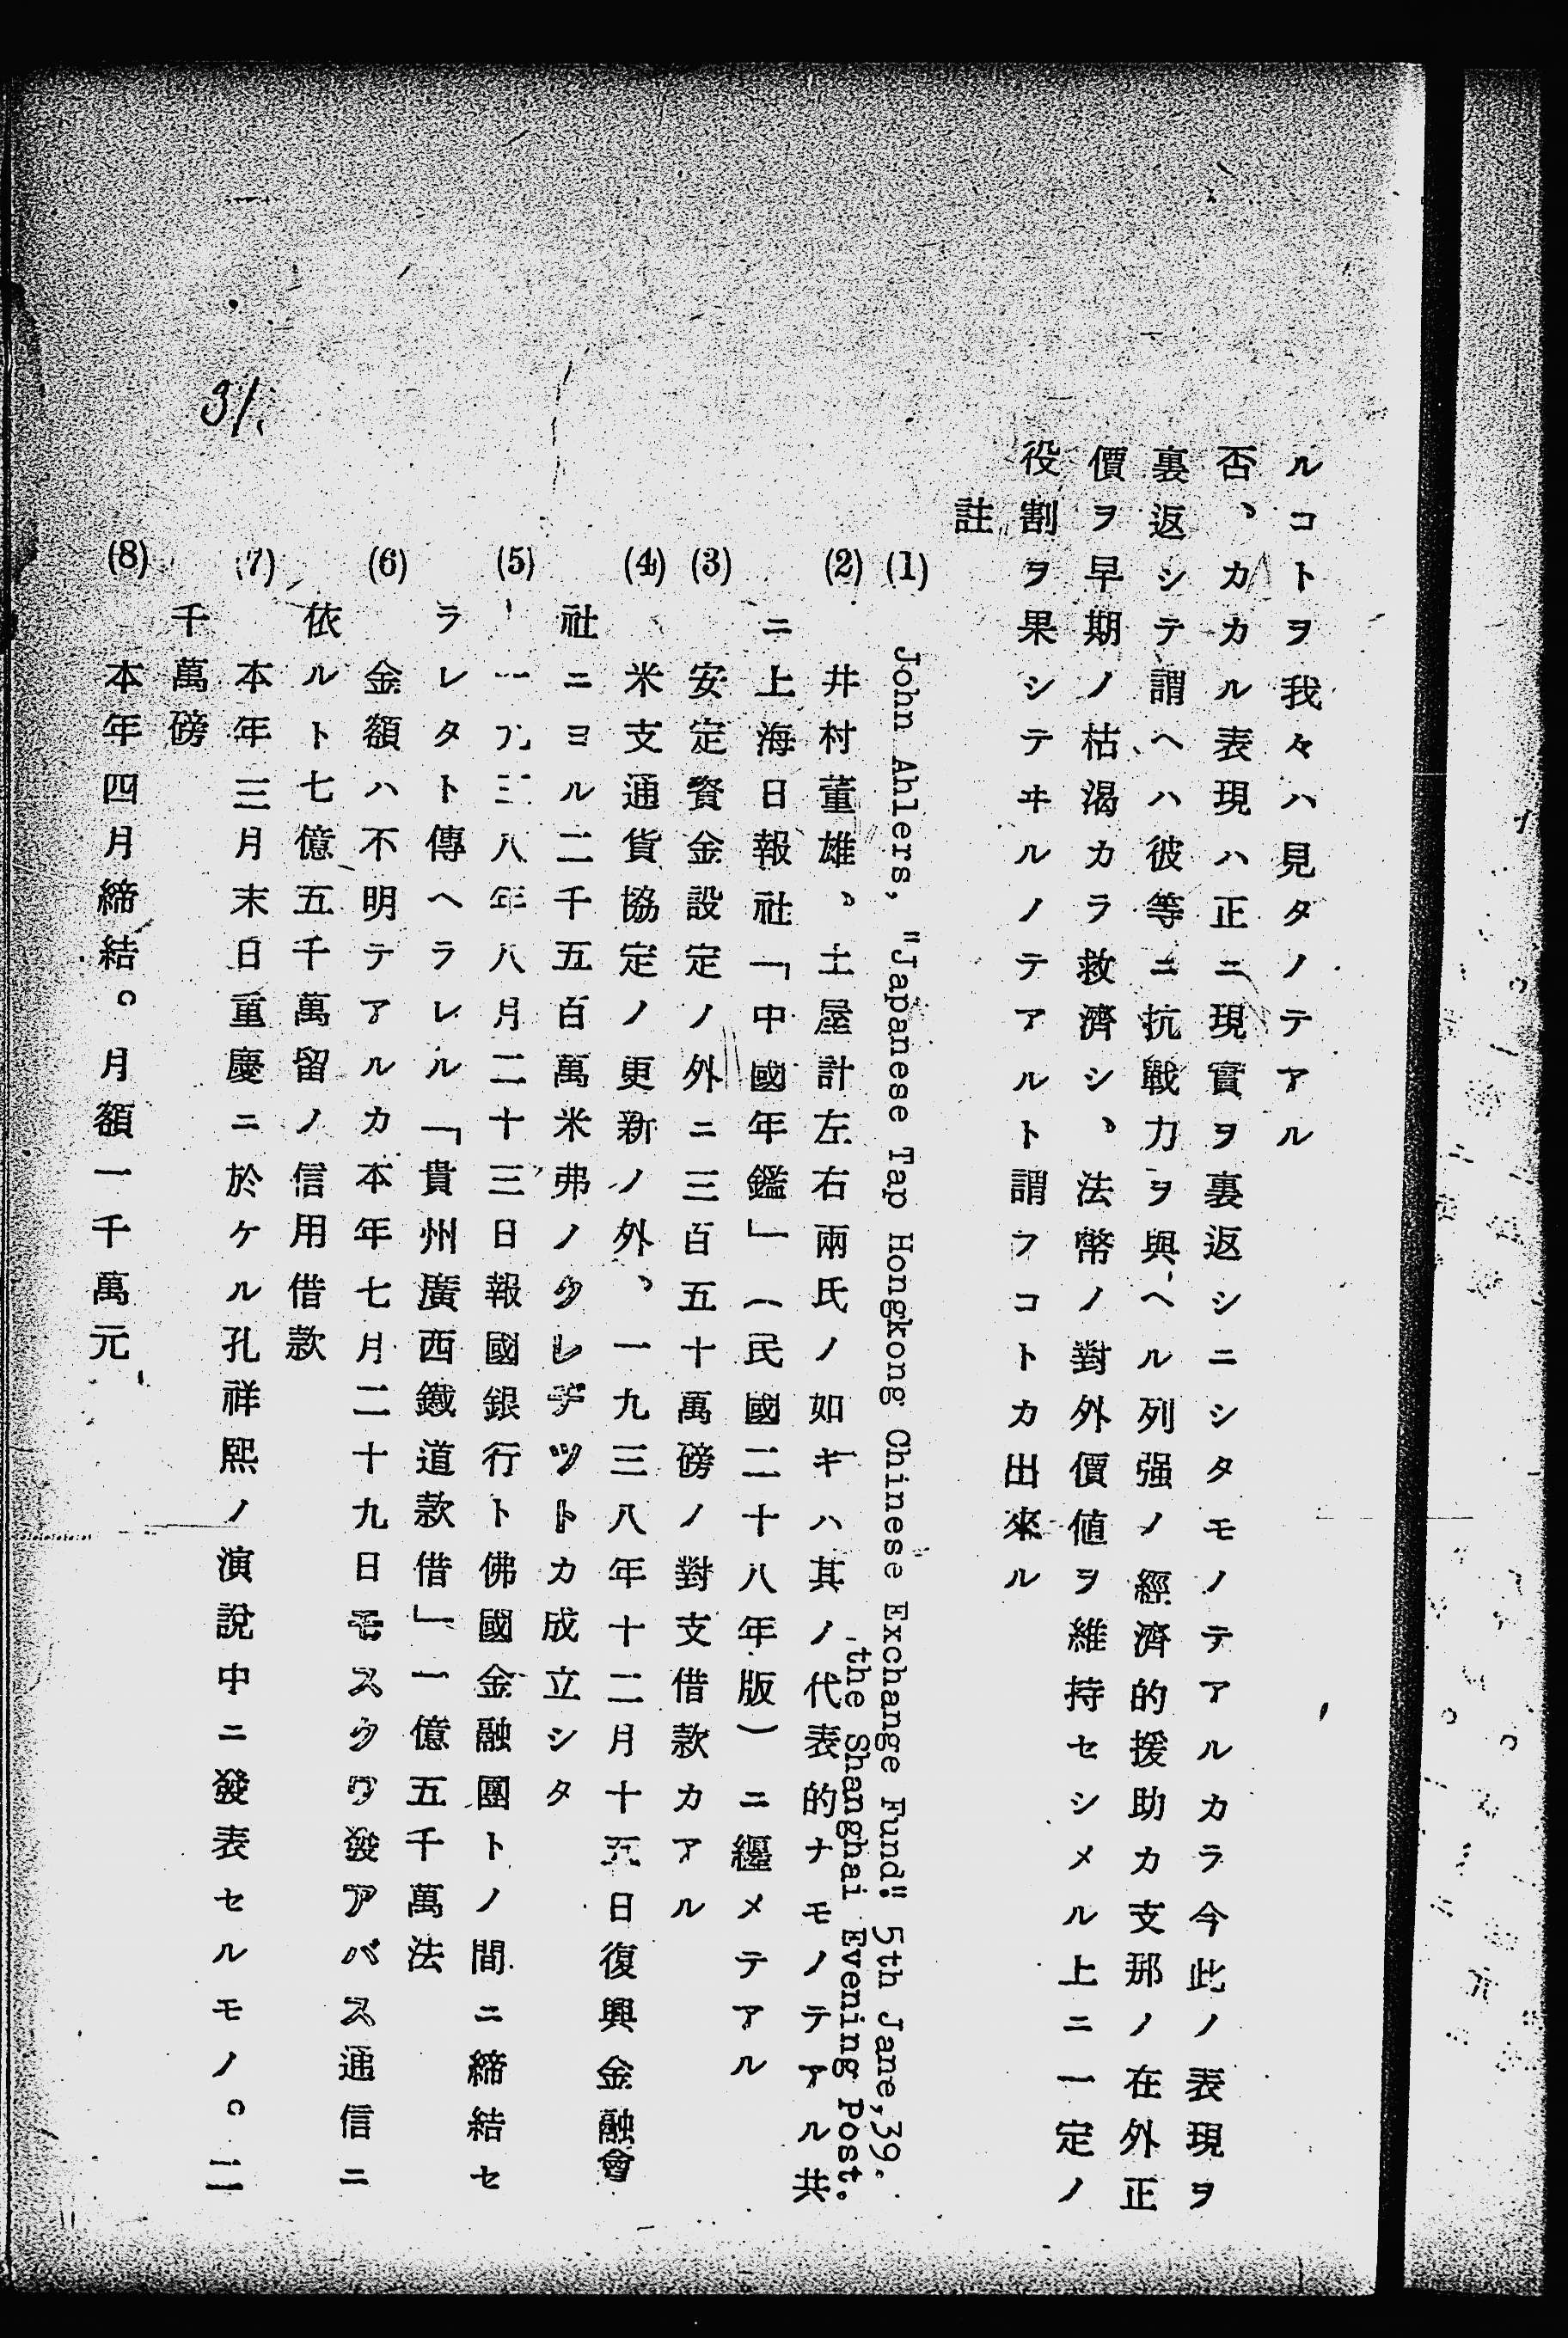 ルコトヲ我々ハ見タノテアル
否、カカル表現ハ正ニ現實ヲ裏返シニシタモノテアルカラ今此ノ表現ヲ
裏返シテ謂ヘハ彼等ニ抗戰力ヲ與ヘル列强ノ經濟的援助カ支那ノ在外正
價ヲ早期ノ枯渇カラ救濟シ、法幣ノ對外價値ヲ維持セシメル上ニ一定ノ
役割ヲ果シテヰルノテアルト謂フコトカ出來ル
註
(1) John Ahlers, "Japanese Tap Hongkong Chinese Exchange Fund" 5th Jane,39.
the Shanghai Evening Post.
(2) 井村董雄、土屋計左右兩氏ノ如キハ其ノ代表的ナモノテアル共
ニ上海日報社「中國年鑑」(民國二十八年版)ニ纒メテアル
(3) 安定資金設定ノ外ニ三百五十萬磅ノ對支借款カアル
(4) 米支通貨協定ノ更新ノ外、一九三八年十二月十五日復興金融會
社ニヨル二千五百萬米弗ノクレデツトカ成立シタ
(5) 一九三八年八月二十三日報國銀行ト佛國金融團トノ間ニ締結セ
ラレタト傳ヘラレル「貴州廣西鐵道款借」一億五千萬法
(6) 金額ハ不明テアルカ本年七月二十九日モスクワ發アバス通信ニ
依ルト七億五千萬留ノ信用借款
(7) 本年三月末日重慶ニ於ケル孔祥熙ノ演說中ニ發表セルモノ。二
千萬磅
(8) 本年四月締結。月額一千萬元
31.